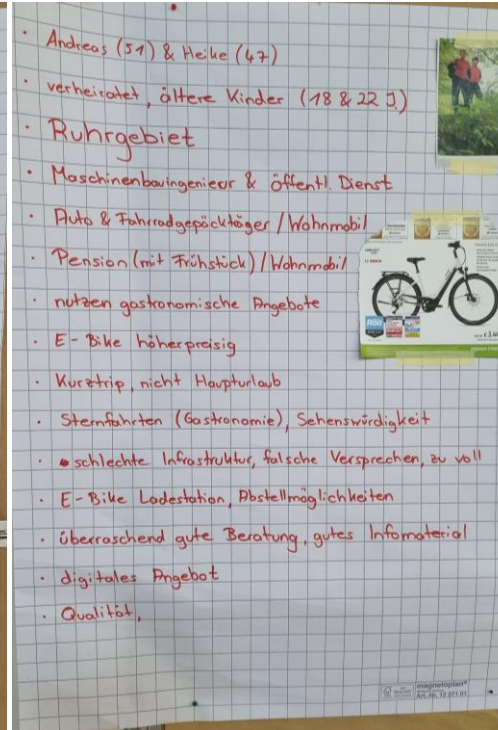 · Andreas (51) & Heike (47)
· verheiratet, ältere Kinder (18 & 22 J.)
· Ruhrgebiet
· Maschinenbauingenieur & öffentl. Dienst
· Auto & Fahrradgepäckträger / Wohnmobil
· Pension (mit Frühstück) / Wohnmobil
· nutzen gastronomische Angebote
· E-Bike höherpreisig
· Kurztrip, nicht Haupturlaub
· Sternfahrten (Gastronomie), Sehenswürdigkeit
· schlechte Infrastruktur, falsche Versprechen, zu voll
· E-Bike Ladestation, Abstellmöglichkeiten
· überraschend gute Beratung, gutes Infomaterial
· digitales Angebot
· Qualität,
magnetoplan®